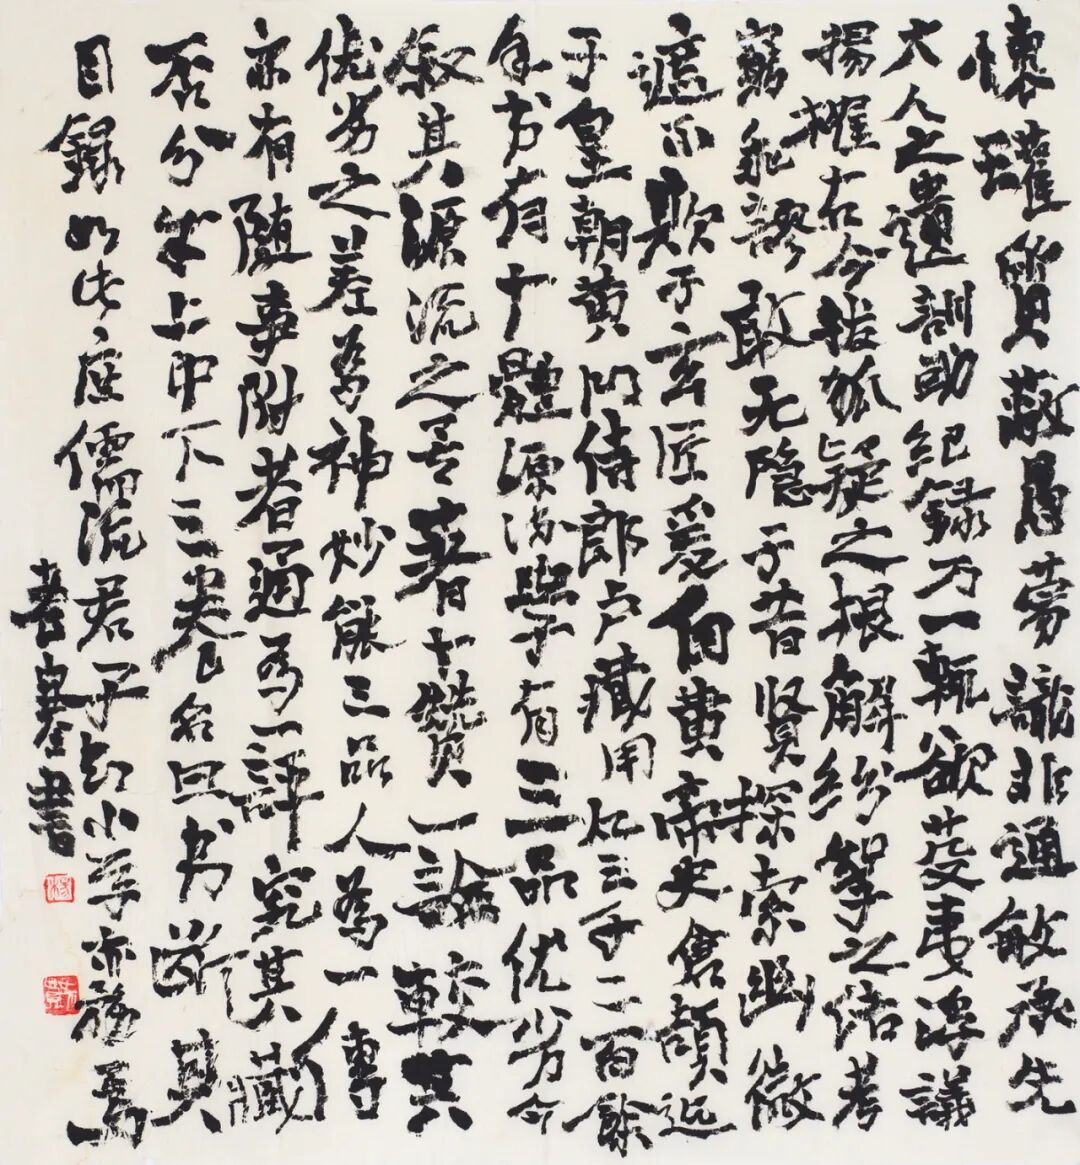 懷瓘質蔽愚蒙識非通敏承先
大人之遺訓助紀録万一輒欲芟夷浮議
揚搉古今拔狐疑之根解纷挐之结考
窮乖謬敢无隐于昔贤探索幽微
遮不欺于玄匠爰自黄帝史倉頡迄
于皇朝黄门侍郎卢藏用凡三千二百餘
年书有十體源流學有三品优劣今
叙其源流之異著十赞一論較其
优劣之差为神妙能三品人為一傳
亦有随事附者通为一評究其臧
否分成上中下三卷名曰书断其
目録如此庶儒流君子知小学亦務焉
書